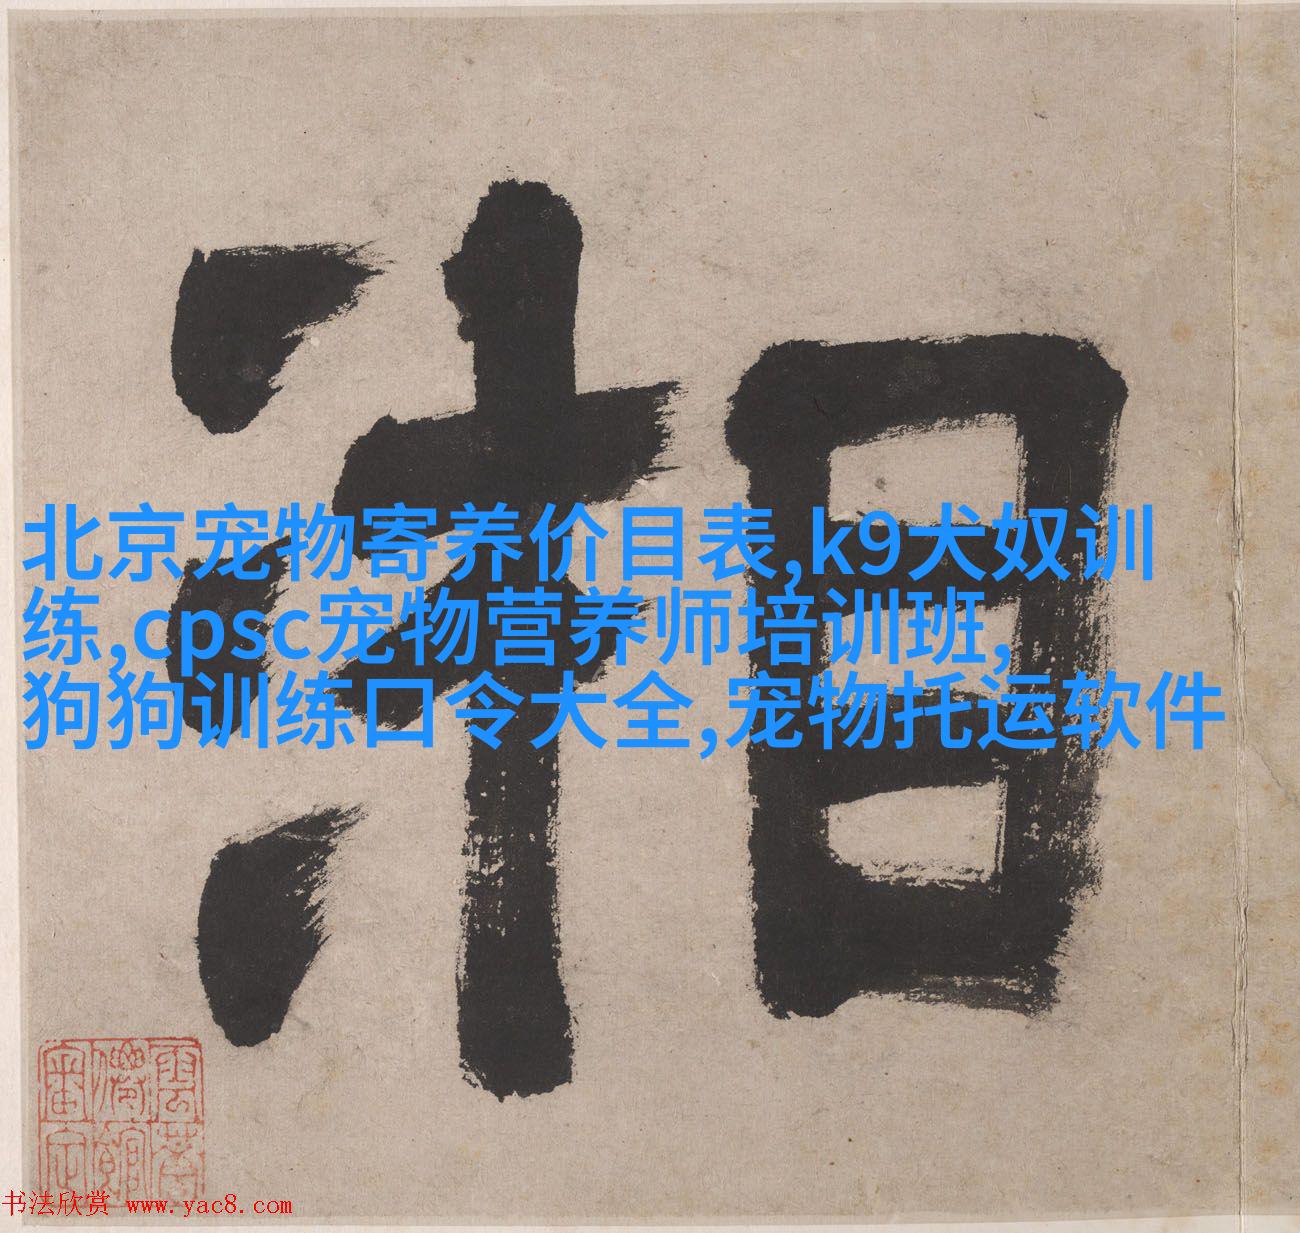 湘
北京宠物寄养价目表,k9犬奴训
练,cpsc宠物营养师培训班,
狗狗训练口令大全,宠物托运软件
书法欣赏 www.yac8.com